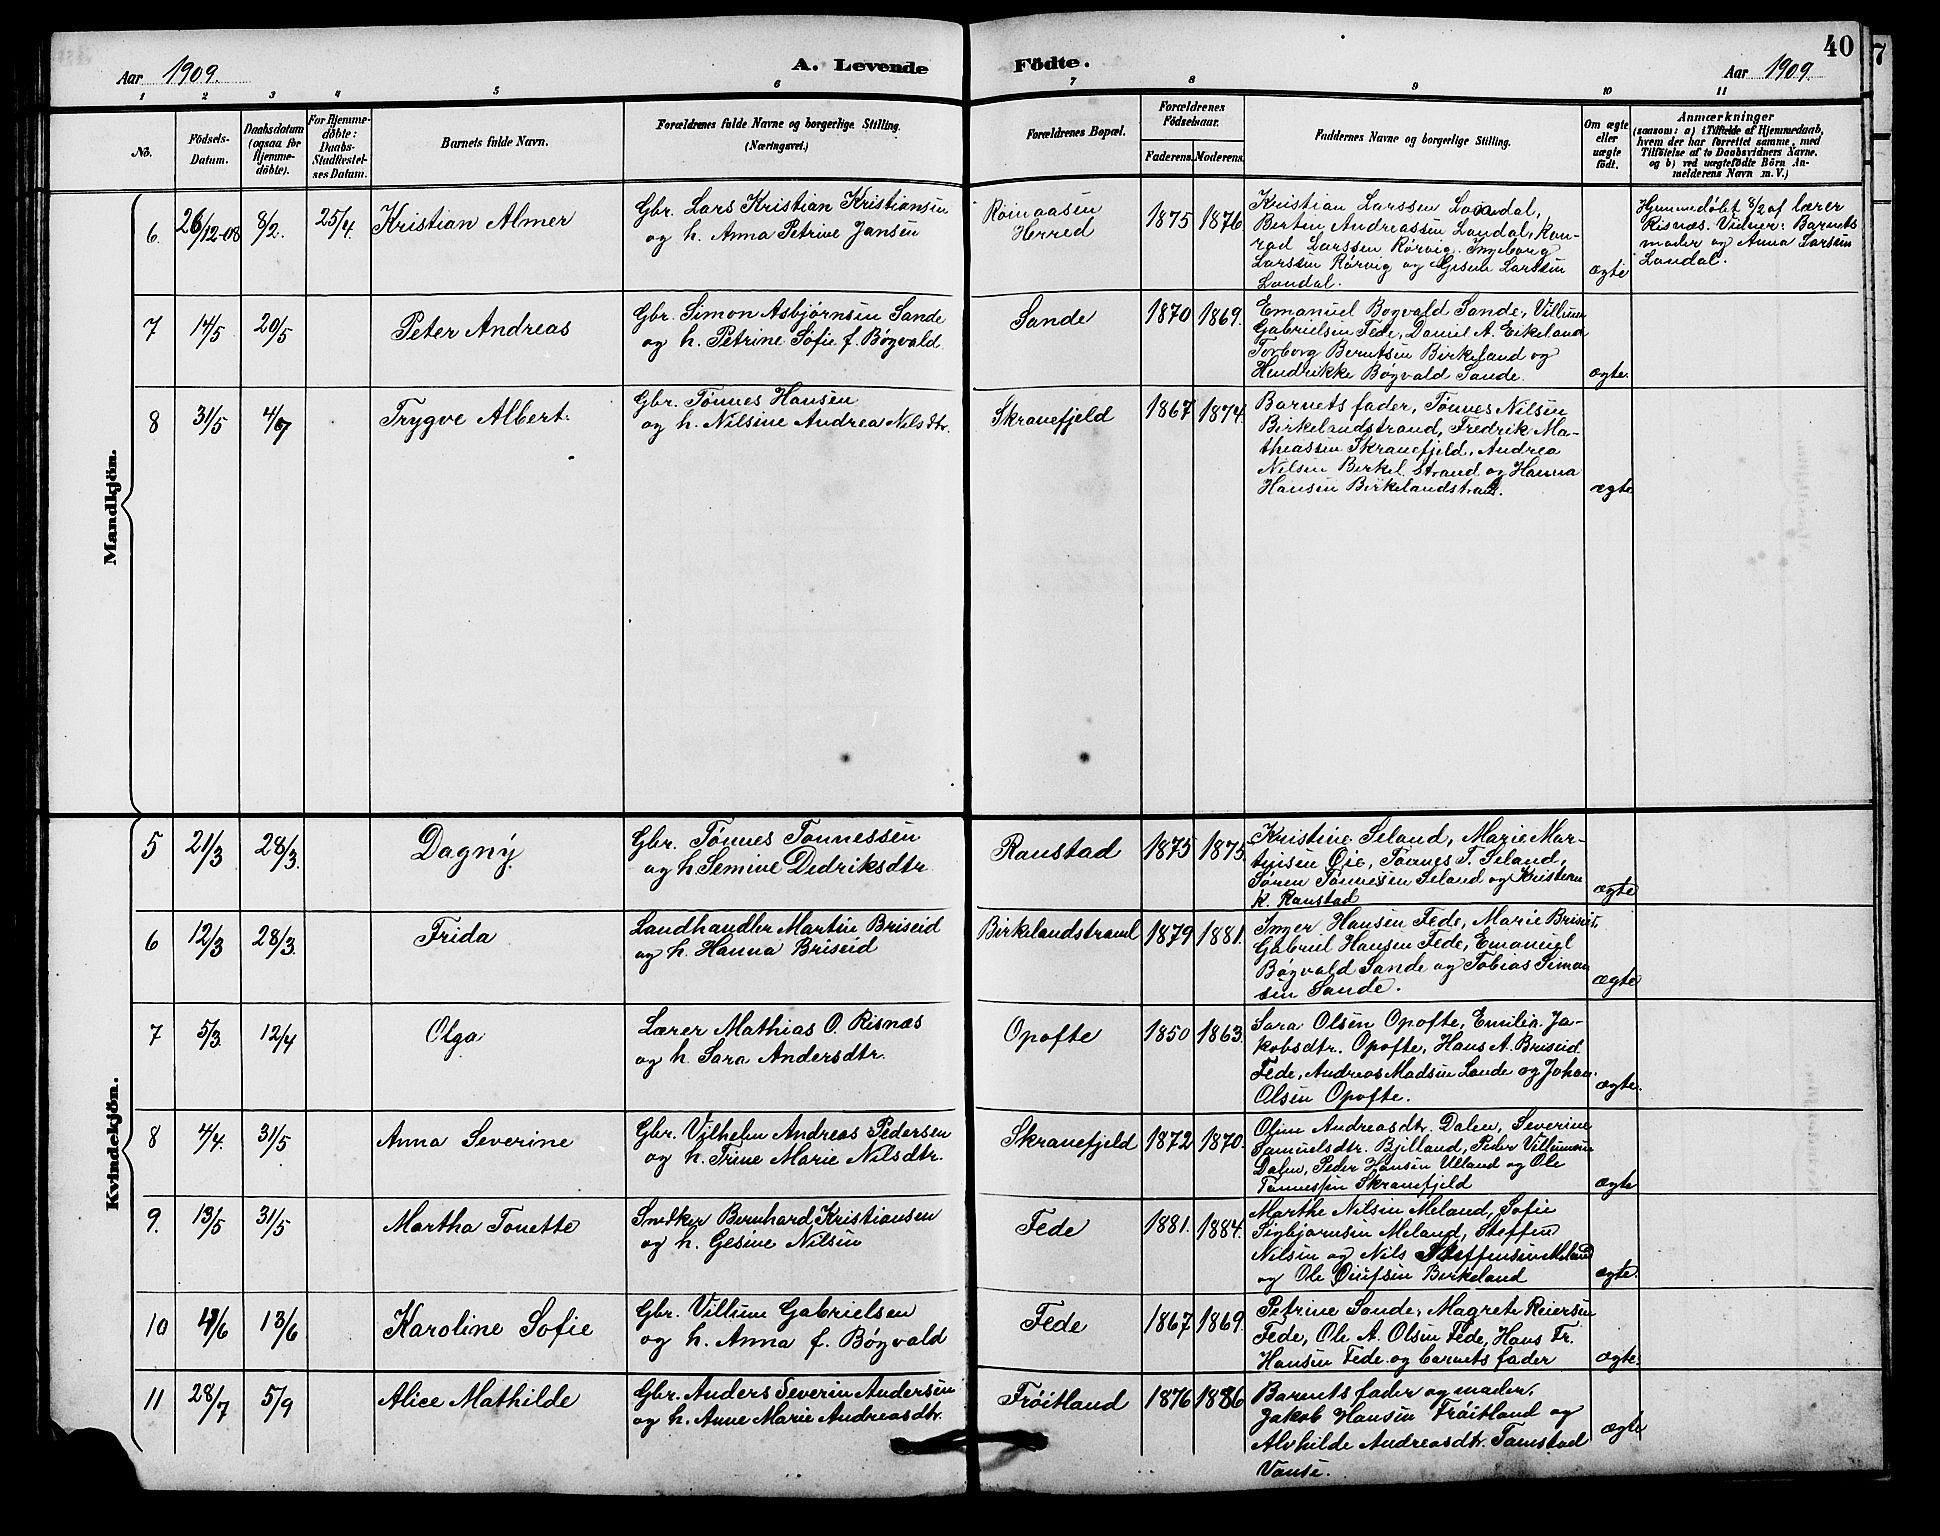 40
7
Aar 1909.
A. Levende Födte.
Aar 1909
1 2 3 4 5 6 7 8 9 10 11
No.
Födsels-
Datum.
Daabsdatum
(ogsaa for
Hjemme-
döbte).
For Hjemme-
döbte:
Daabs-
Stadfæstel-
ses Datum.
Barnets fulde Navn.
Forældrenes fulde Navne og borgerlige Stilling.
(Næringsvei.)
Forældrenes Bopæl.
Forældrenes
Födselsaar.
Faderens. Moderens.
Faddernes Navne og borgerlige Stilling.
Om ægte
eller
uægte
födt.
Anmærkninger
(saasom: a) i Tilfælde af Hjemmedaab,
hvem der har forrettet samme, med
Tilföielse af to Daabsvidners Navne.
og b) ved uægtefödte Börn An-
melderens Navn m. V.)
Mandkjön.
6. 26/12-08 8/2. 25/4. Kristian Almer
Gbr. Lars Kristian Kristiansen
og h. Anna Petrine Jansen
Røinaasen
Herred
1875 1876
Kristian Larssen Londal,
Bertin Andreassen Londal, Kon-
rad Larssen Rørvig, Ingeborg
Larssen Rørvig og Gesine Larssen
Londal.
ægte
Hjemmedøbt 8/2 af lærer
Risnæs. Vidner: Barnets
moder og Anna Larssen
Londal.
7 14/5 20/5 Peter Andreas
Gbr. Simon Asbjørnsen Sande
og h. Petrine Sofie f. Bøgvald
Sande
1870 1869.
Emanuel Bøgvald Sande, Villum
Gabrielsen Fede, Daniel A. Eikeland
Torborg Berntsen Birkeland og
Hendrikke Bøgvald Sande.
ægte.
8 31/5 4/7 Trygve Albert.
Gbr. Tønnes Hansen
og h. Nilsine Andrea Nilsdtr.
Skranefjeld
1867 1874.
Barnets fader, Tønnes Nilsen
Birkelandstrand, Fredrik Ma-
theassen Skranefjeld, Andrea
Nilsen Birkel. strand og Hanna
Hansen Birkelandstrand.
ægte
Kvindekjön.
5 21/3 28/3. Dagny
Gbr. Tønnes Tønnessen
og h. Semine Dedriksdtr.
Ranstad
1875 1875.
Kristine Seland, Marie Mar-
tinsen Øie, Tønnes T. Seland,
Søren Tønnessen Seland og Kristian
K. Ranstad
ægte
6 12/3 28/3. Frida
Landhandler Martin Briseid
og h. Hanna Briseid
Birkelandstrand
1879 1881.
Inger Hansen Fede, Marie Briseid,
Gabriel Hansen Fede, Emanuel
Bøgvald Sande og Tobias Simon
sen Sande.
ægte
7 5/3. 12/4 Olga
Lærer Mathias O. Risnæs
og h. Sara Andersdtr.
Opofte
1850 1863.
Sara Olsen Opofte, Emilie Ja-
kobsdtr. Opofte, Hans A. Briseid
Fede, Andreas Madsen Sande og Johan
Olsen Opofte.
ægte.
8 4/4. 31/5 Anna Severine
Gbr. Vilhelm Andreas Pedersen
og h. Trine Marie Nilsdtr.
Skranefjeld
1872 1870.
Oline Andreasdtr. Dalen, Severine
Samuelsdtr. Bjelland, Peder Villumsen
Dalen, Peder Hansen Ulland og Ole
Tønnessen Skranefjeld
ægte
9. 13/5 31/5 Martha Tonette
Snedker Bernhard Kristiansen
og h. Gesine Nilsen
Fede
1881. 1884.
Marthe Nilsen Meland, Sofie
Sigbjørnsen Meland, Steffen
Nilsen og Nils Steffensen Meland
og Ole Birkeland
ægte.
10 4/6 13/6 Karoline Sofie
Gbr. Villum Gabrielsen
og h. Anna f. Bøgvald
Fede
1867 1869.
Petrine Sande, Magrete Reiersen
Fede, Ole A. Olsen Fede, Hans Fr.
Hansen Fede og barnets fader
ægte.
11 28/7 5/9 Alice Mathilde
Gbr. Anders Severin Andersen
og h. Anne Marie Andreasdtr.
Frøitland
1876 1886
Barnets fader og moder,
Jakob Hansen Frøitland og
Alvhilde Andreasdtr. Tamstad
Vanse.
ægte